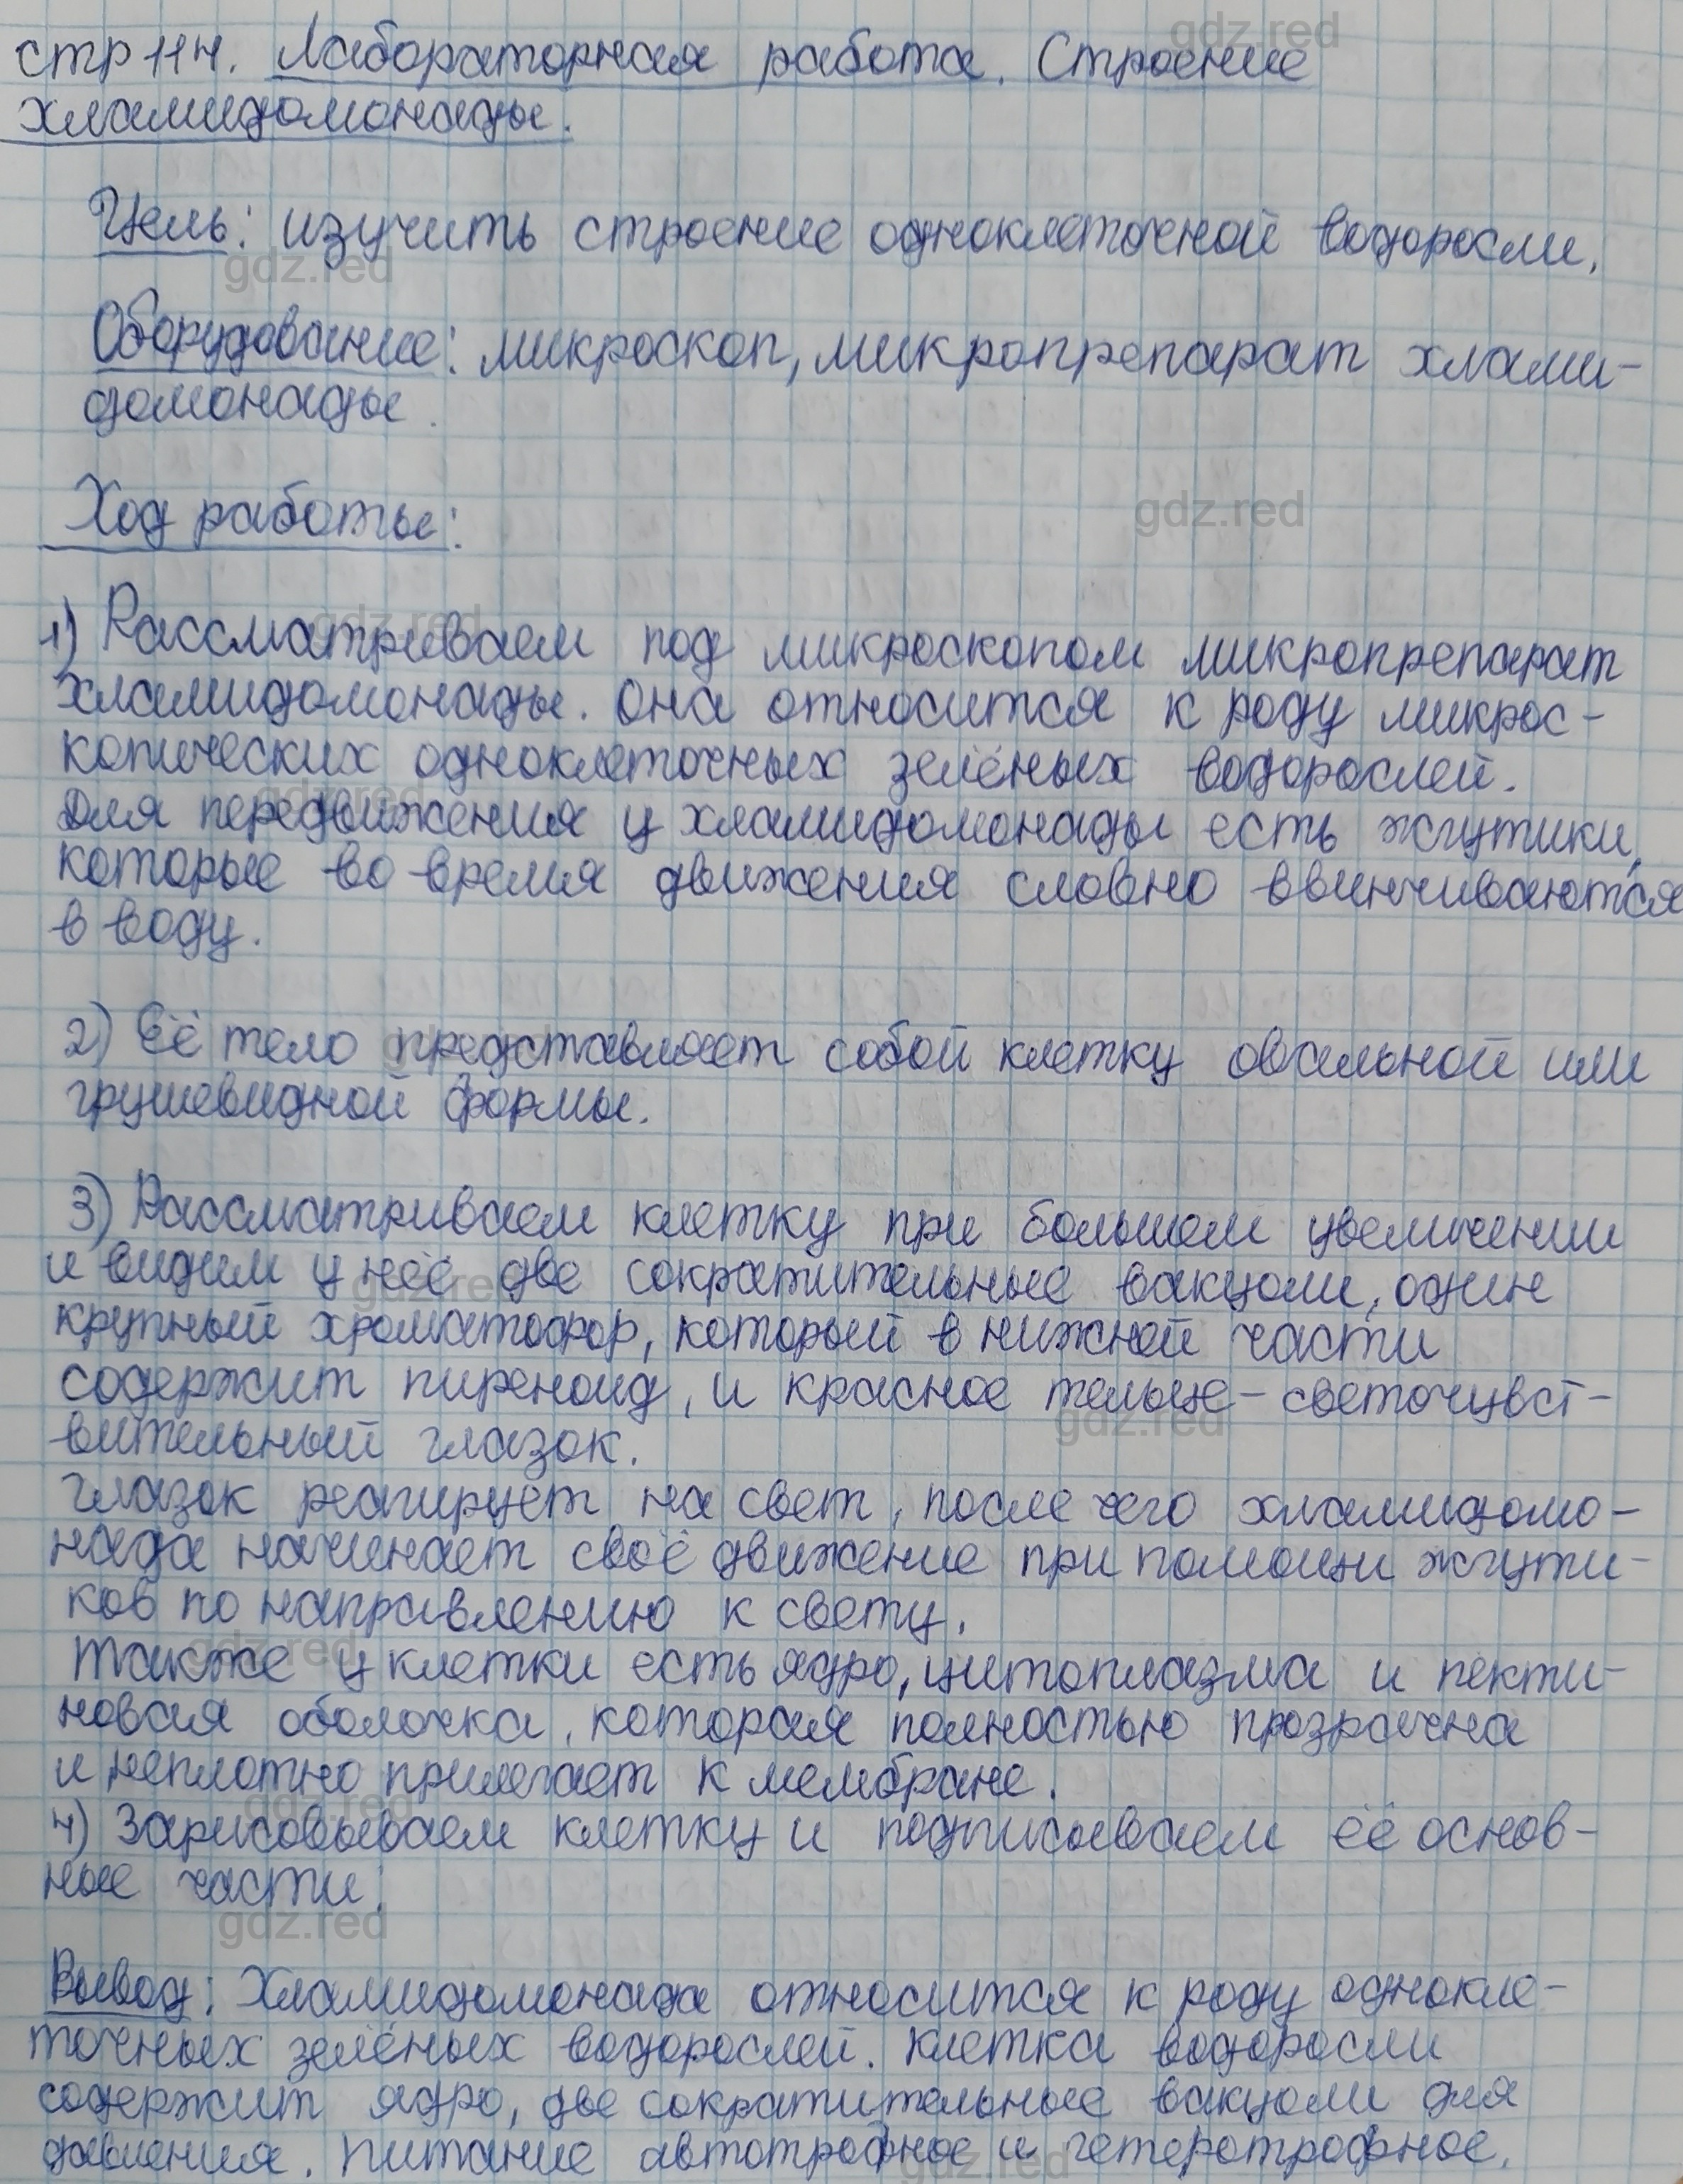 стр 114. Лабораторная работа. Строение
хламидомонады.
Цель: изучить строение одноклеточной водоросли.
Оборудование: микроскоп, микропрепарат хлами-
домонады.
Ход работы:
1) Рассматриваем под микроскопом микропрепарат
хламидомонады. Она относится к роду микрос-
копических одноклеточных зелёных водорослей.
Для передвижения у хламидомонады есть жгутики,
которые во время движения словно ввинчиваются
в воду.
2) Её тело представляет собой клетку овальной или
грушевидной формы.
3) Рассматриваем клетку при большем увеличении
и видим у неё две сократительные вакуоли, один
крупный хроматофор, который в нижней части
содержит пиреноид, и красное тельце - светочувст-
вительный глазок.
Глазок реагирует на свет, после чего хламидомо-
нада начинает своё движение при помощи жгути-
ков по направлению к свету.
Также у клетки есть ядро, цитоплазма и пекти-
новая оболочка, которая полностью прозрачна
и неплотно прилегает к мембране.
4) Зарисовываем клетку и подписываем её основ-
ные части.
Вывод: Хламидомонада относится к роду однокле-
точных зелёных водорослей. Клетка водоросли
содержит ядро, две сократительные вакуоли для
давления. Питание автотрофное и гетеротрофное.
gdz.red
gdz.red
gdz.red
gdz.red
gdz.red
gdz.red
gdz.red
gdz.red
gdz.red
gdz.red
gdz.red
gdz.red